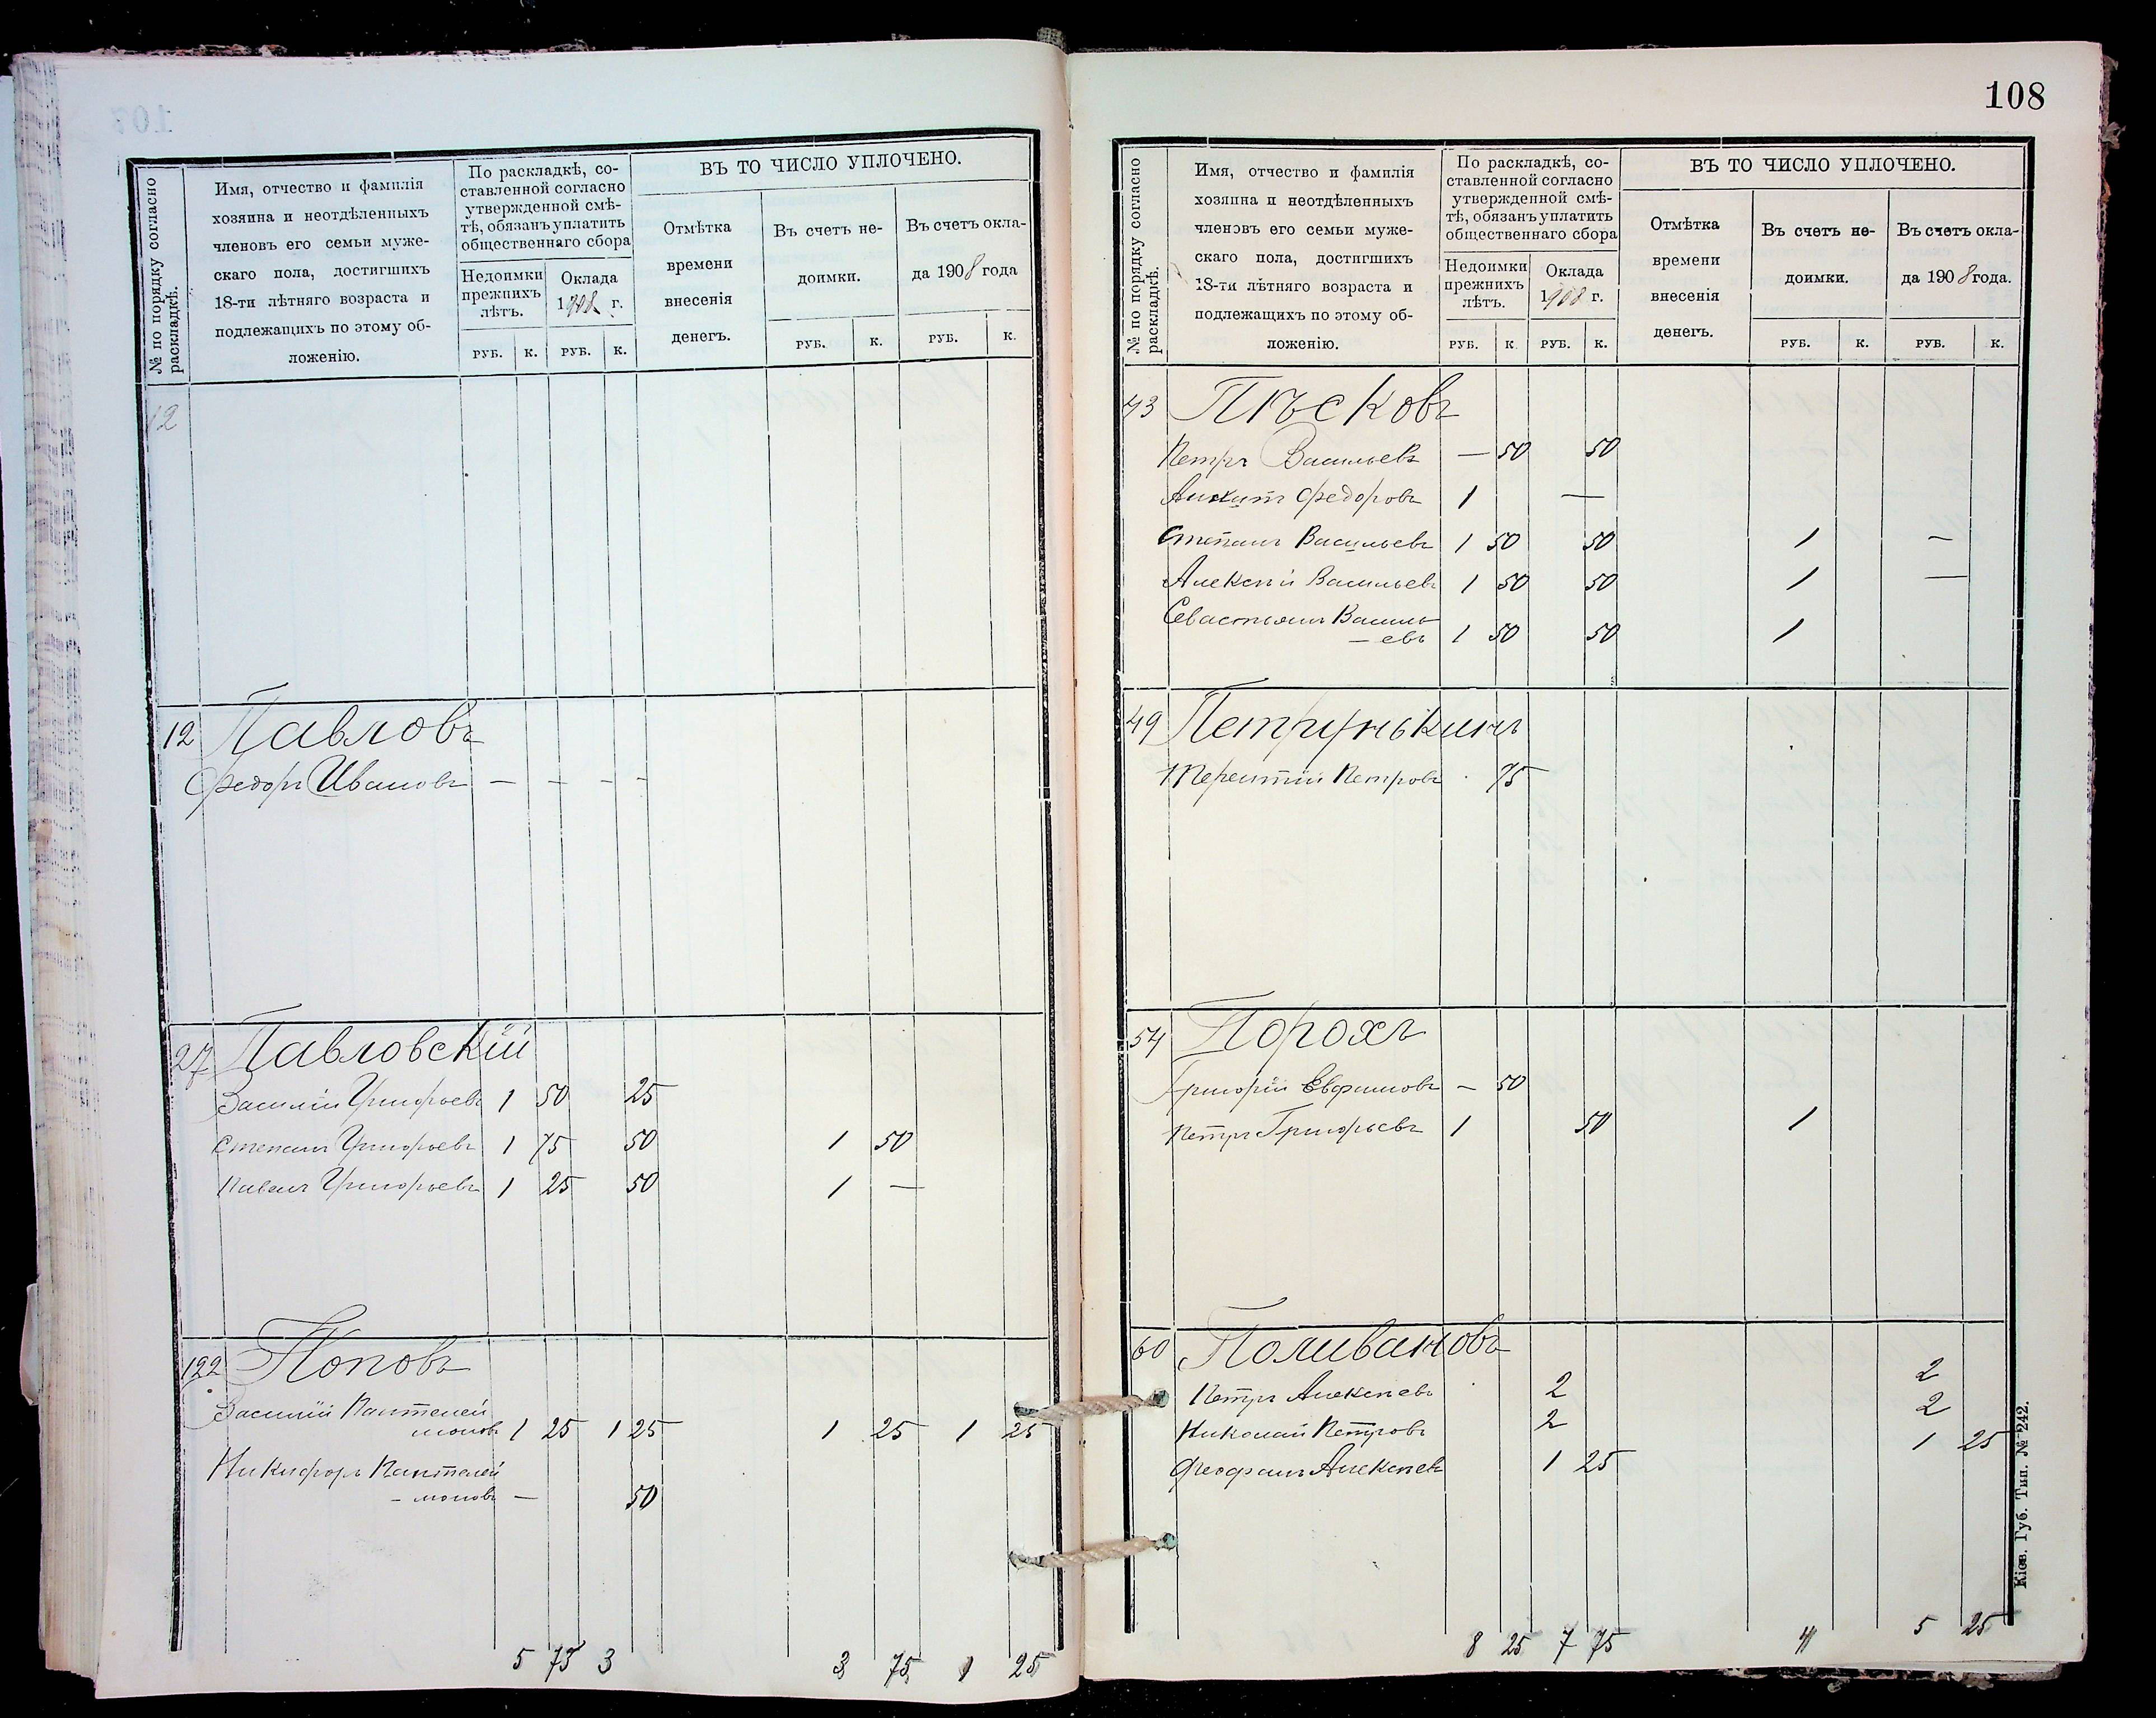 108
№ по порядку согласно раскладкѣ.
Имя, отчество и фамилія
хозяина и неотдѣленныхъ
членовъ его семьи муже-
скаго пола, достигшихъ
18-ти лѣтняго возраста и
подлежащихъ по этому об-
ложенію.
По раскладкѣ, со-
ставленной согласно
утвержденной смѣ-
тѣ, обязанъ уплатить
общественнаго сбора
Недоимки
прежнихъ
лѣтъ.
Оклада
1908 г.
ВЪ ТО ЧИСЛО УПЛОЧЕНО.
Отмѣтка
времени
внесенія
денегъ.
Въ счетъ не-
доимки.
Въ счетъ окла-
да 1908 года
РУБ. К. РУБ. К. РУБ. К. РУБ. К.
12
12 Павловъ
Федоръ Ивановъ — — — —
27 Павловскій
Василій Григорьевъ 1 50 25
Степанъ Григорьевъ 1 75 50 1 50
Павелъ Григорьевъ 1 25 50 1 —
122 Поповъ
Василій Пантелей
моновъ 1 25 1 25 1 25 1 25
Никифоръ Пантелей
– моновъ — 50
5 75 3 3 75 1 25
№ по порядку согласно раскладкѣ.
Имя, отчество и фамилія
хозяина и неотдѣленныхъ
членовъ его семьи муже-
скаго пола, достигшихъ
18-ти лѣтняго возраста и
подлежащихъ по этому об-
ложенію.
По раскладкѣ, со-
ставленной согласно
утвержденной смѣ-
тѣ, обязанъ уплатить
общественнаго сбора
Недоимки
прежнихъ
лѣтъ.
Оклада
1908 г.
ВЪ ТО ЧИСЛО УПЛОЧЕНО.
Отмѣтка
времени
внесенія
денегъ.
Въ счетъ не-
доимки.
Въ счетъ окла-
да 1908 года.
РУБ. К. РУБ. К. РУБ. К. РУБ. К.
43 Пѣсковъ
Петръ Васильевъ — 50 50
Федоровъ 1 —
Степанъ Васильевъ 1 50 50 1 —
Алексѣй Васильевъ 1 50 50 1 —
Севастьянъ Василь
— евъ 1 50 50 1
49 Петрунькинъ
Петровъ 75
54 Порохъ
Григорій Евфимовъ — 50
Петръ Григорьевъ 1 50 1
60 Поливановъ
Петръ Алексѣевъ 2 2
Николай Петровъ 2 2
Феофанъ Алексѣевъ 1 25 1 25
8 25 7 75 4 5 25
Кіев. Губ. Тип. № 242.